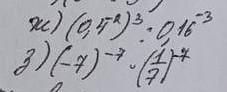 ж) (0,4²)³ : 0,16⁻³
з) (-7)⁻⁷ · (1/7)⁻⁷